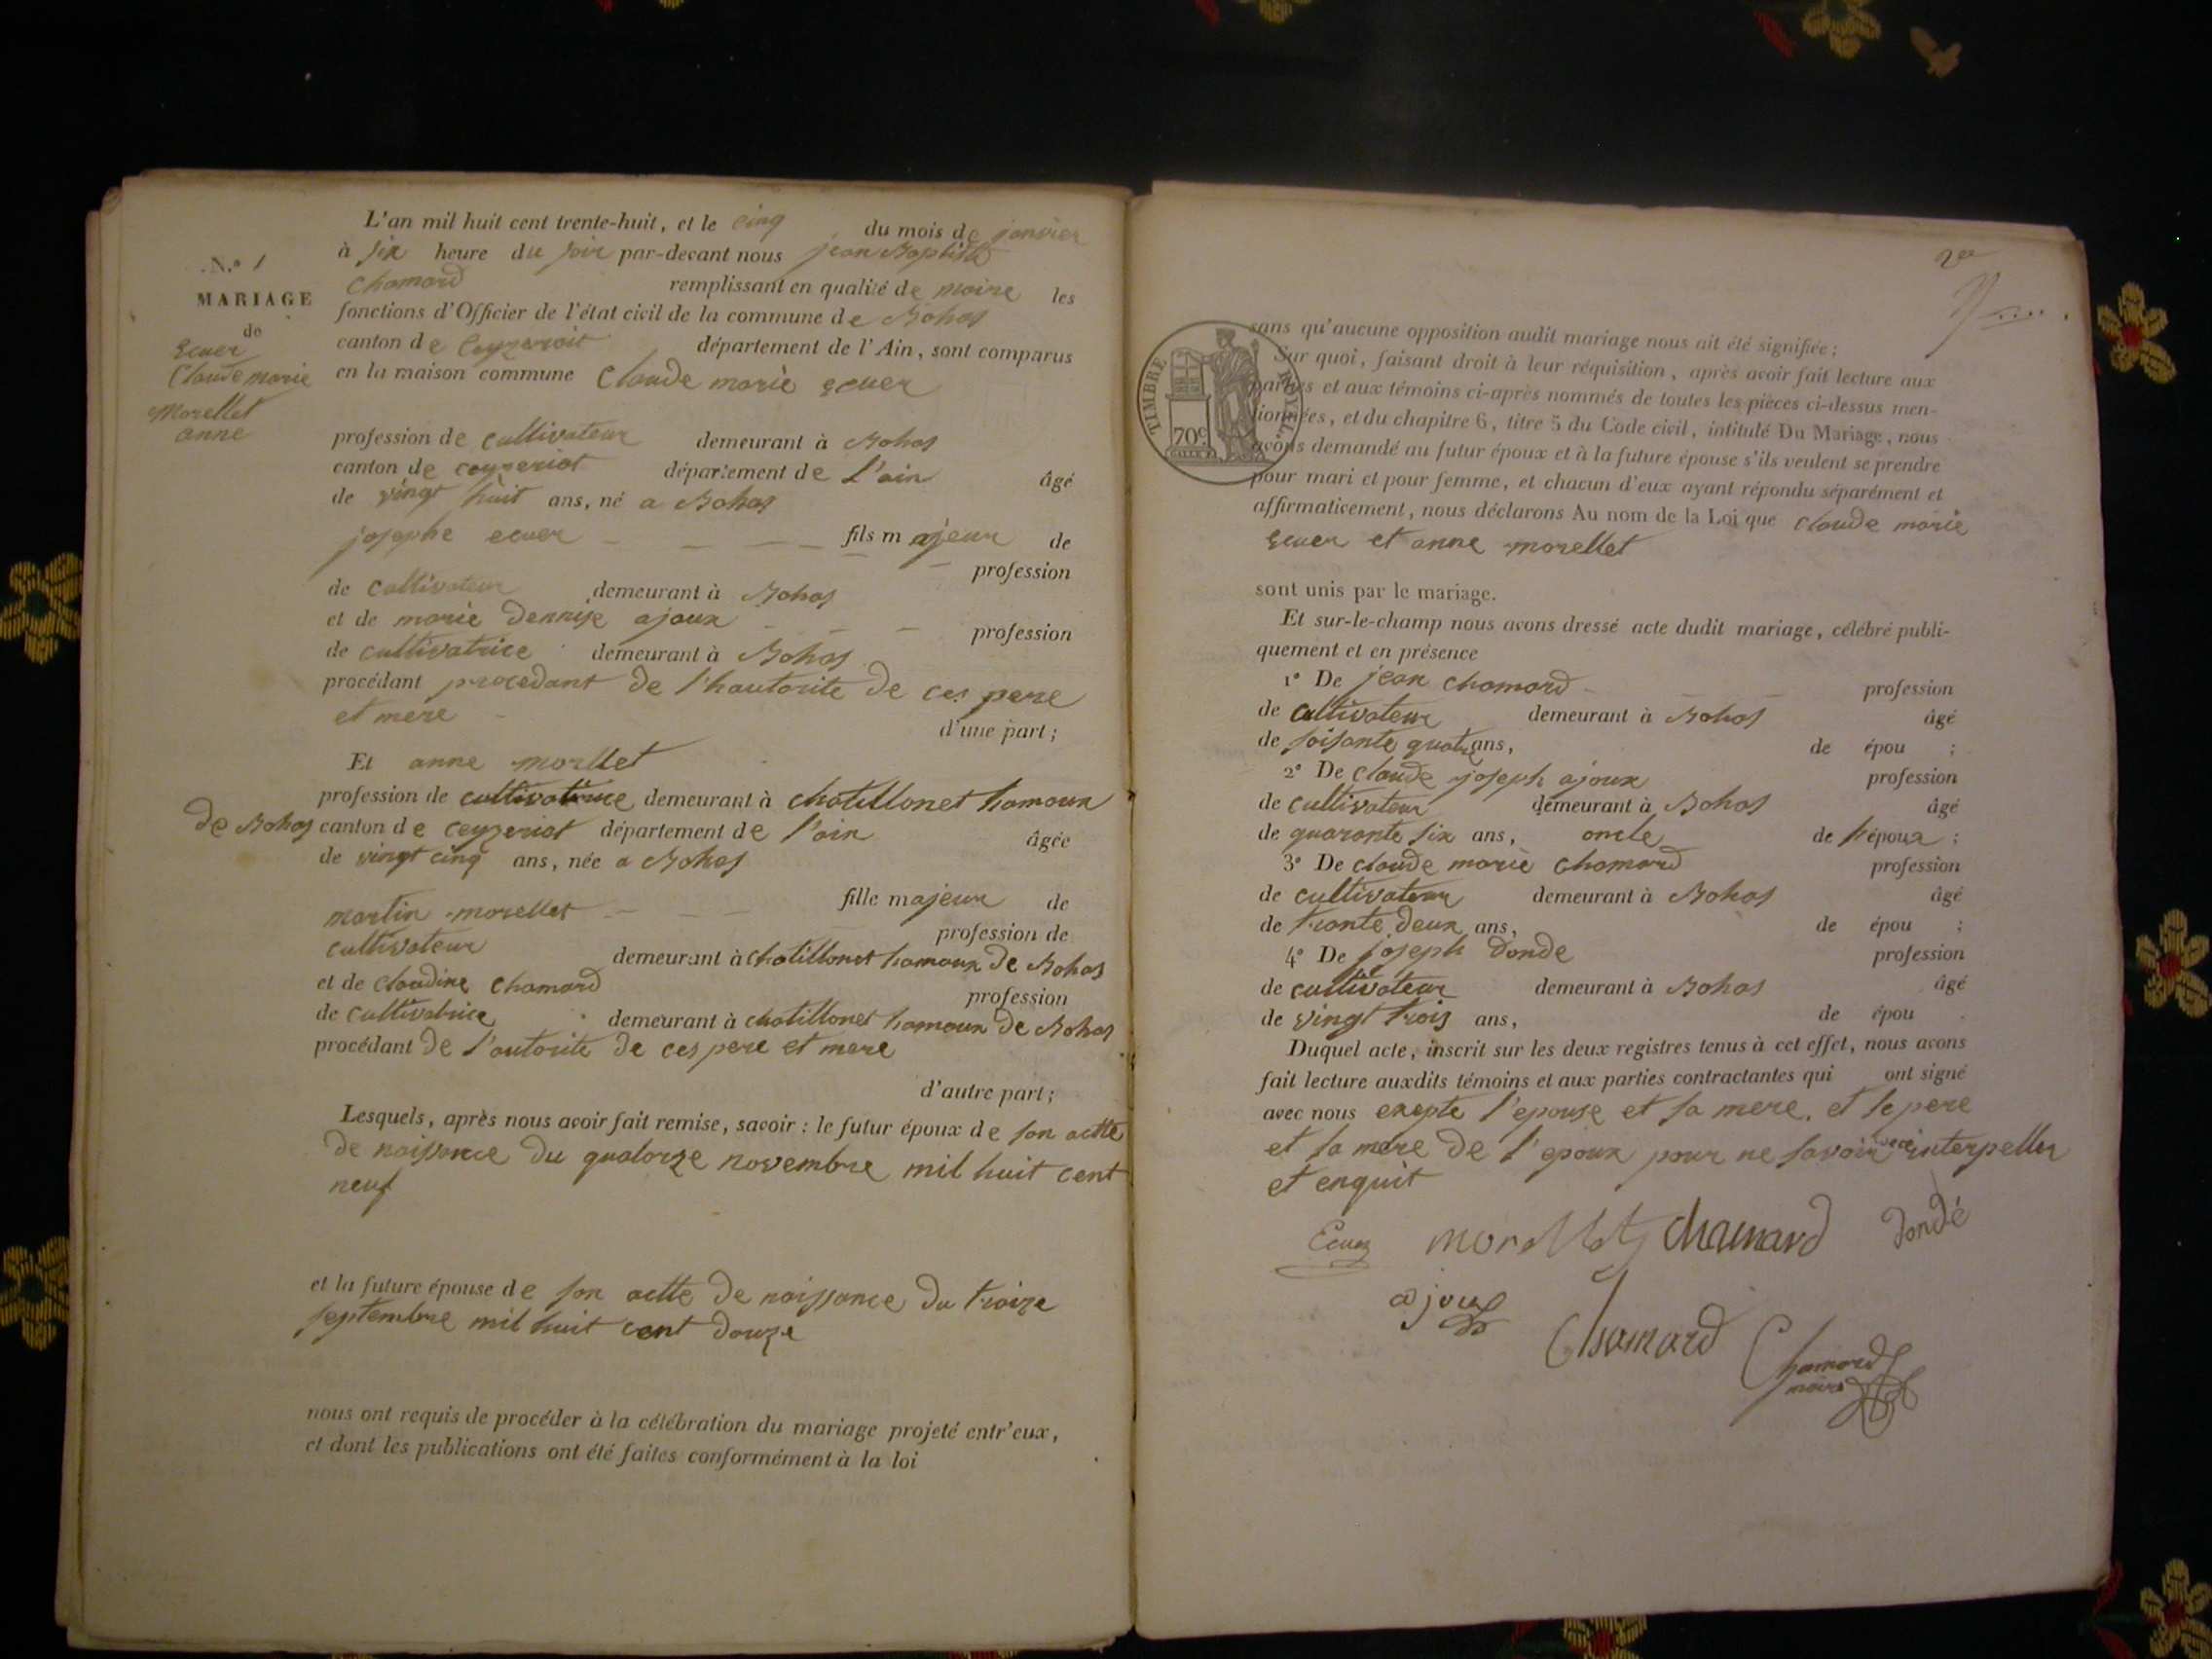 N.º 1
MARIAGE
de
Ecuer
Claude marie
Morellet
anne
L'an mil huit cent trente-huit, et le cinq du mois de janvier
à six heure du soir par-devant nous jean Baptiste
Chamard remplissant en qualité de maire les
fonctions d'Officier de l'état civil de la commune de Bohas
canton de Ceyzeriat département de l'Ain, sont comparus
en la maison commune Claude marie Ecuer
profession de cultivateur demeurant à Bohas
canton de ceyzeriat département de l'ain âgé
de vingt huit ans, né a Bohas
fils majeur de
josephe ecuer profession
de cultivateur demeurant à Bohas
et de marie Dennise ajoux profession
de cultivatrice demeurant à Bohas
procédant procedant de l'hautorite de ces pere
et mere
d'une part;
Et anne morllet
profession de cultivatrice demeurant à chatillonet hamoux
de Bohas canton de ceyzeriat département de l'ain âgée
de vingt cinq ans, née a Bohas
fille majeur de
martin morellet profession de
cultivateur demeurant à chatillonet hamoux de Bohas
et de claudine chamard profession
de cultivatrice demeurant à chatillonet hamoux de Bohas
procédant de l'autorite de ces pere et mere
d'autre part;
Lesquels, après nous avoir fait remise, savoir: le futur époux de son actte
de naissance du quatorze novembre mil huit cent
neuf
et la future épouse de son actte de naissance du traize
septembre mil huit cent douze
nous ont requis de procéder à la célébration du mariage projeté entr'eux,
et dont les publications ont été faites conformément à la loi
TIMBRE ROYAL.
70c
sans qu'aucune opposition audit mariage nous ait été signifiée;
Sur quoi, faisant droit à leur réquisition, après avoir fait lecture aux
parties et aux témoins ci-après nommés de toutes les pièces ci-dessus men-
tionnées, et du chapitre 6, titre 5 du Code civil, intitulé Du Mariage, nous
avons demandé au futur époux et à la future épouse s'ils veulent se prendre
pour mari et pour femme, et chacun d'eux ayant répondu séparément et
affirmativement, nous déclarons Au nom de la Loi que claude marie
Ecuer et anne morellet
sont unis par le mariage.
Et sur-le-champ nous avons dressé acte dudit mariage, célébré publi-
quement et en présence
1º De jean chamard profession
de cultivateur demeurant à Bohas âgé
de soisante quatre ans, de épou ;
2º De claude joseph ajoux profession
de cultivateur demeurant à Bohas âgé
de quarante six ans, oncle de l'époux ;
3º De claude marie chamard profession
de cultivateur demeurant à Bohas âgé
de trante deux ans, de épou ;
4º De joseph Donde profession
de cultivateur demeurant à Bohas âgé
de vingt trois ans, de épou
Duquel acte, inscrit sur les deux registres tenus à cet effet, nous avons
fait lecture auxdits témoins et aux parties contractantes qui ont signé
avec nous exepte l'epouse et sa mere, et le pere
et la mere de l'epoux pour ne savoir interpeller
et enquit
Ecuer morellet chamard dondé
ajoux
Chamard Chamard
maire